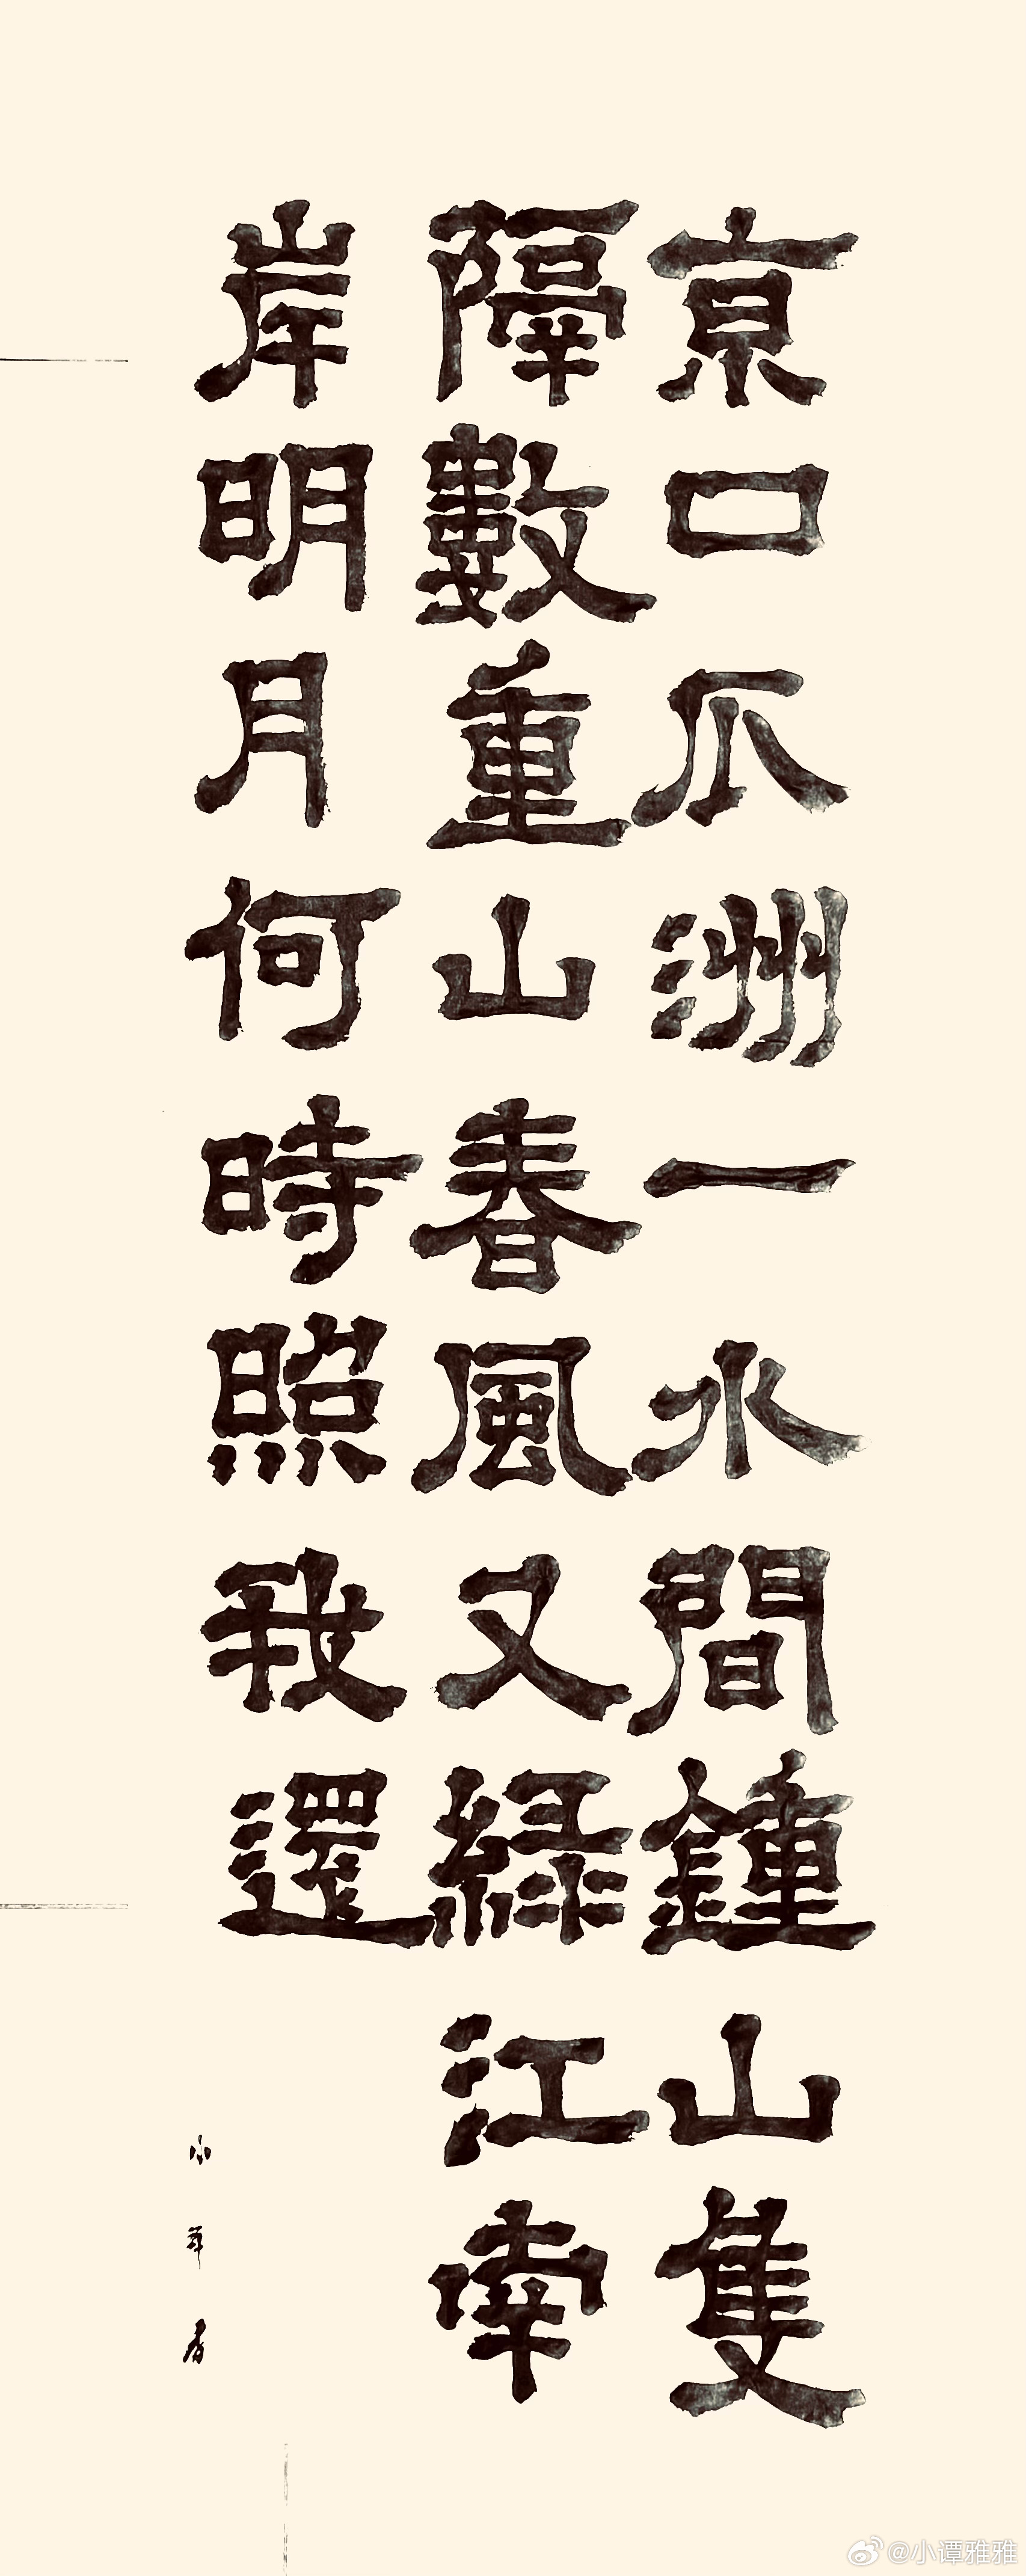 京口瓜洲一水間鍾山隻
隔數重山春風又綠江南
岸明月何時照我還
@小谭雅雅